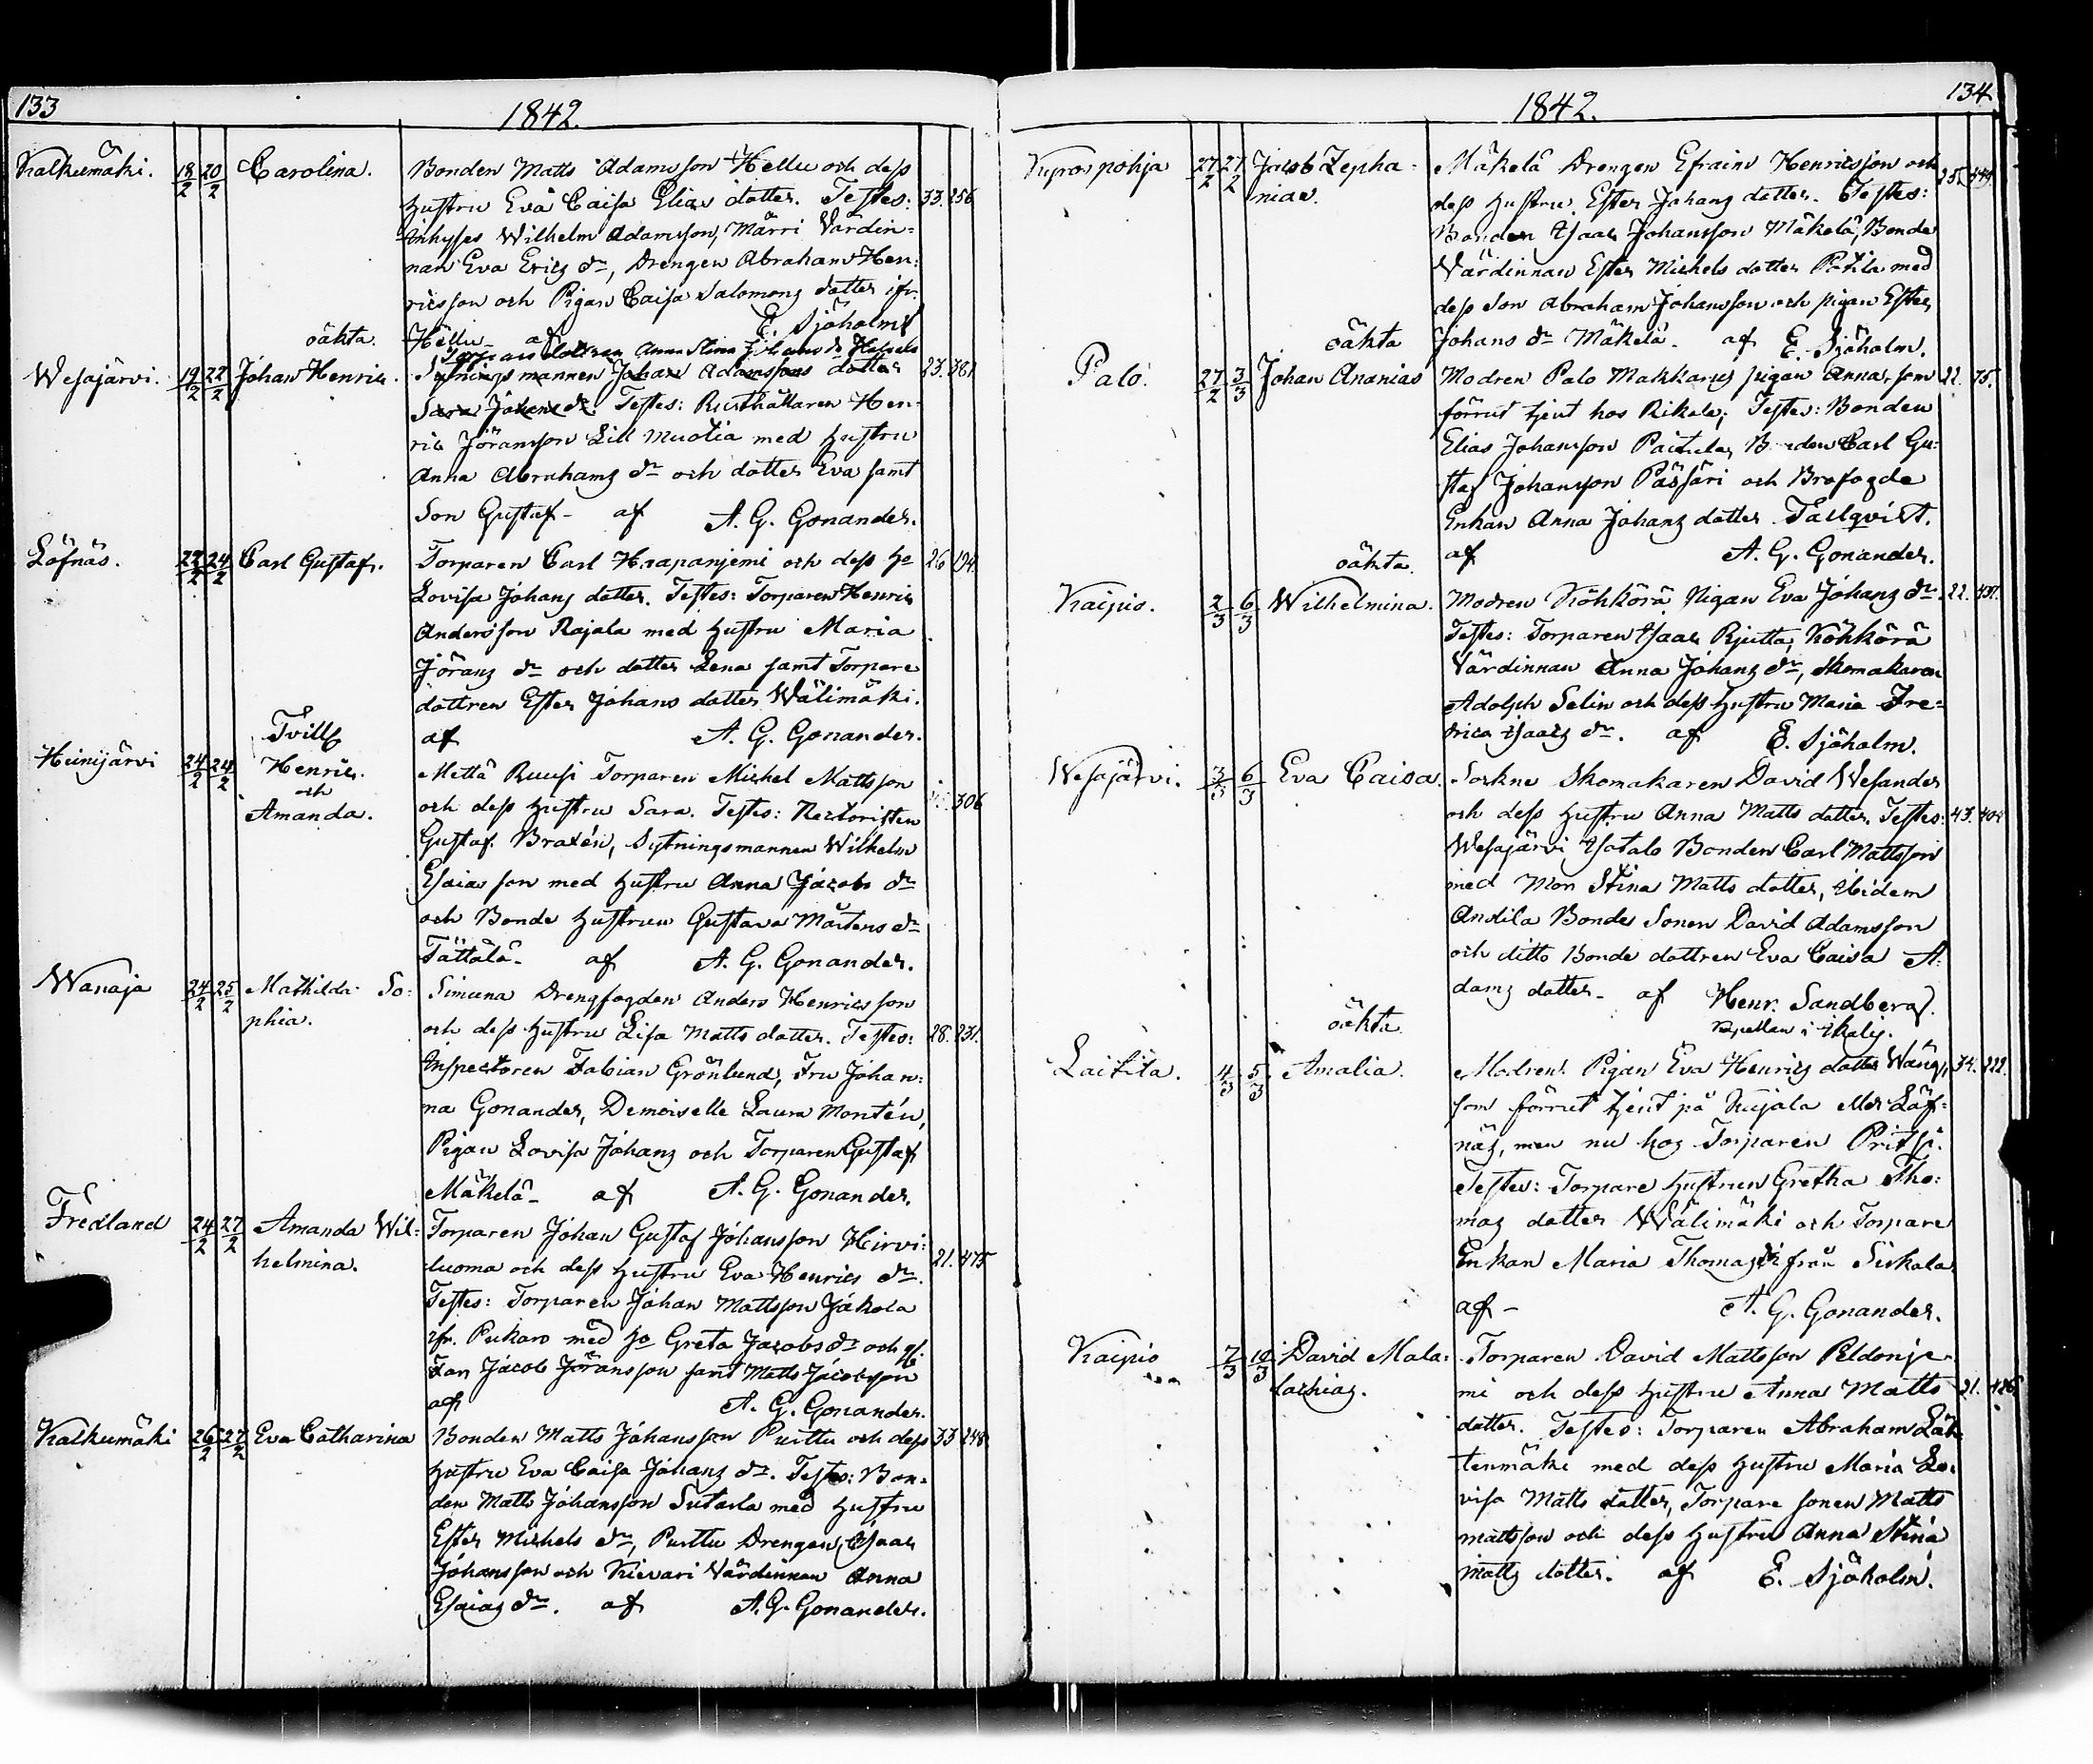 133
1842.
Kalkumäki. 18/2 20/2 Carolina. Bonden Matts Adamsson Hellu och dess
hustru Eva Caisa Elias dotter. Testes: 33. 256
Inhyses Wilhelm Adamsson, Märri Värdin-
nan Eva Erics dr, Drengen Abraham Hen-
ricsson och Pigan Caisa Salomons dotter ifr.
Hellu af E. Sjöholm
oäkta.
Torpare dottren Anna Stina Johans dr
Wesajärvi. 19/2 22/2 Johan Henric. Sytningsmannen Johan Adamssons dotter 23. 381
Sara Johans dr. Testes: Rusthållaren Hen-
ric Jöransson Lill Muotia med hustru
Anna Abrahams dr och dotter Eva samt
Son Gustaf - af A. G. Gonander.
Löfnäs. 22/2 24/2 Carl Gustaf. Torparen Carl Haapanjemi och dess ho 26 194.
Lovisa Johans dotter. Testes: Torparen Henric
Andersson Rajala med hustru Maria
Jörans dr och dotter Lena samt Torpare
dottren Ester Johans dotter Wälimäki.
af A. G. Gonander.
Tvill.
Heinijärvi 24/2 24/2 Henric. Mettä Ruusi Torparen Michel Mattsson
och
Amanda. och dess hustru Sara. Testes: 306
Gustaf Braxén, Sytningsmannen Wilhelm
Esaiasson med hustru Anna Jacobs dr
och Bonde hustrun Gustava Mårtens dr
Tättälä - af A. G. Gonander.
Wanaja 24/2 25/2 Mathilda So- Simuna Drengfogden Anders Henricsson
phia. och dess hustru Lisa Matts dotter. Testes: 28. 231.
Inspectoren Fabian Grönlund, Fru Johan-
na Gonander, Demoiselle Laura Montén,
Pigan Lovisa Johans och Torparen Gustaf
Mäkelä - af A. G. Gonander.
Fredland 24/2 27/2 Amanda Wil- Torparen Johan Gustaf Johansson Hirvi-
helmina. luoma och dess hustru Eva Henrics dr. 21. 475
Testes: Torparen Johan Mattsson Jäkola
ifr. Pukaro med ho Greta Jacobs dr och
Jacob Jöransson samt Matts Jacobsson
af A. G. Gonander.
Kalkumäki 26/2 27/2 Eva Catharina Bonden Matts Johansson Purttu och dess 33 248
hustru Eva Caisa Johans dr. Testes: Bon-
den Matts Johansson Sutarla med hustru
Ester Michels dr, Purttu Drengen Isaac
Johansson och Kievari Värdinnan Anna
Esaias dr. af A. G. Gonander.
134
1842.
Kyrospohja 27/2 27/2 Jacob Zepha- Mäkelä Drengen Efraim Henricsson och
nias. dess hustru Ester Johans dotter. Testes:
Bonden Isaac Johansson Mäkelä, Bonde
Värdinnan Ester Michels dotter Pätilä med
dess Son Abraham Johansson och pigan Ester
Johans dr Mäkelä. af E. Sjöholm.
oäkta
Palo. 27/2 3/3 Johan Ananias Modren Palo Makkarus pigan Anna, som 22. 75.
förrut tjent hos Rikala; Testes: Bonden
Elias Johansson Paitula, Bonden Carl Gu-
staf Johansson Pässäri och Brofogde
Enkan Anna Johans dotter Tallqvist.
af A. G. Gonander.
oäkta.
Kaipis. 2/3 6/3 Wilhelmina. Modren Köhkörä Pigan Eva Johans dr. 22.
Testes: Torparen Isaac Pjutta, Köhkörä
Värdinnan Anna Johans dr, Skomakaren
Adolph Selin och dess hustru Maria Fre-
drica Isaacs dr. af E. Sjöholm.
Wesajärvi. 3/3 6/3 Eva Caisa. Sockne Skomakaren David Wesander
och dess hustru Anna Matts dotter. Testes: 43. 404
Wesajärvi Isotalo Bonden Carl Mattsson
med Mor Stina Matts dotter, ibidem
Anttila Bonde Sonen David Adamsson
och ditto Bonde dottren Eva Caisa A-
dams dotter - af Henr. Sandberg.
Capellan i Ikalis.
oäkta.
Laitila. 4/3 5/3 Amalia. Modren Pigan Eva Henrics dotter 34. 222.
som förrut tjent på Kujala eller Löf-
näs, men nu hos Torparen Pritsi.
Testes: Torpare hustrun Gretha Tho-
mas dotter Wälimäki och Torpare
Enkan Maria Thomas dr från Siukala
af - A. G. Gonander.
Kaipio 7/3 10/3 David Mala- Torparen David Mattsson Peldonje-
lachias. mi och dess hustru Anna Matts 21.
dotter. Testes: Torparen Abraham Läh-
tenmäki med dess hustru Maria Lo-
visa Matts dotter, Torpare sonen Matts
Mattsson och dess hustru Anna Stina
Matts dotter. af E. Sjöholm.